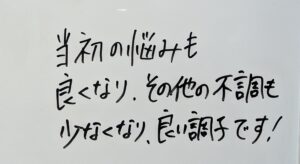 当初の悩みも
良くなり、その他の不調も
少なくなり、良い調子です!